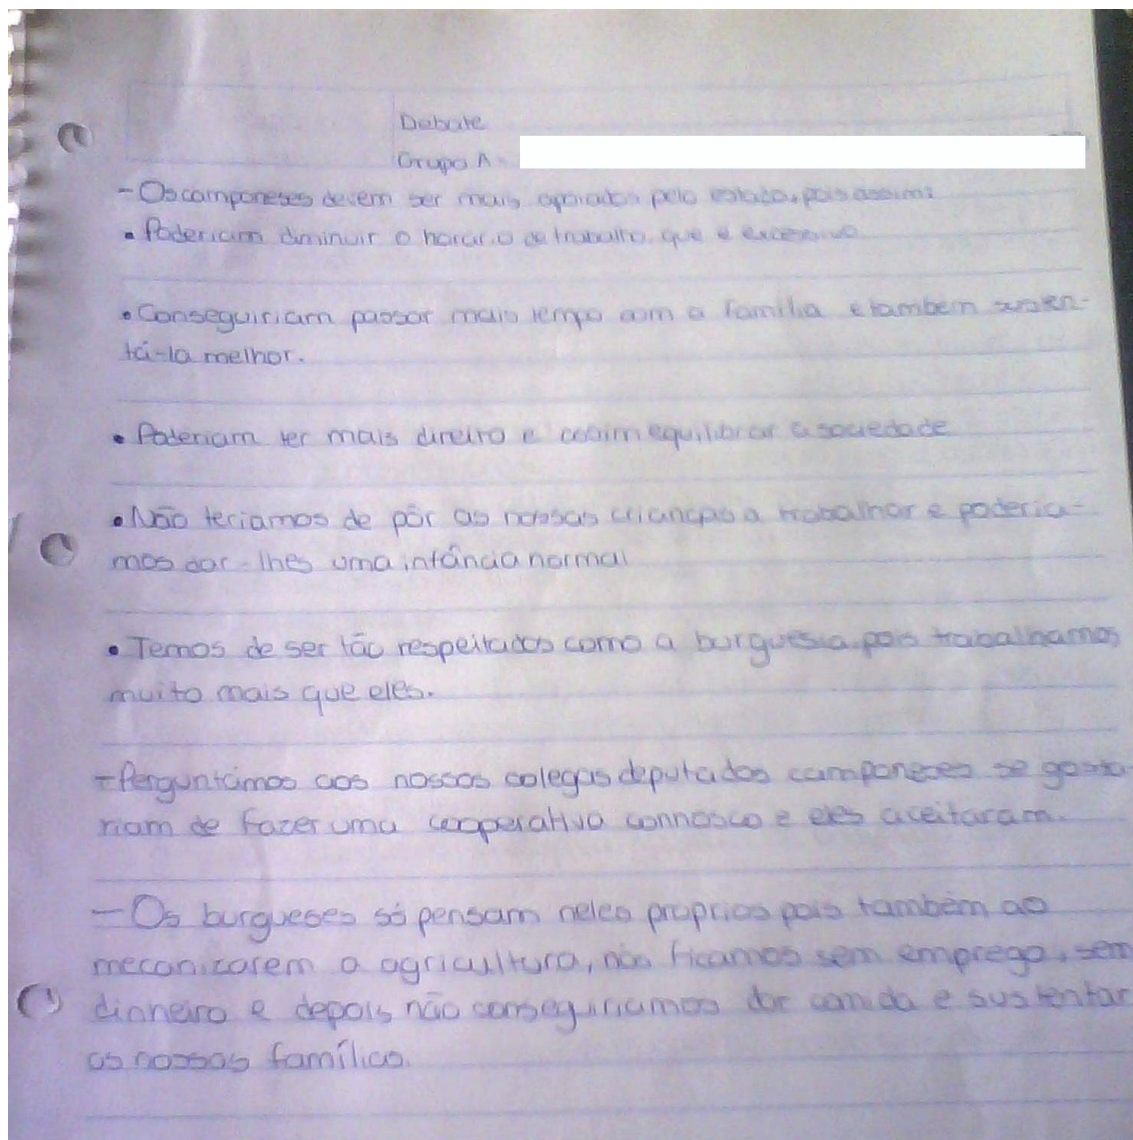 Debate
Grupo A -
- Os camponeses devem ser mais apoiados pelo estado, pois assim:
• Poderiam diminuir o horário de trabalho, que é excessivo
• Conseguiriam passar mais tempo com a família e também susten-
tá-la melhor.
• Poderiam ter mais direito e assim equilibrar a sociedade
• Não teriamos de pôr as nossas crianças a trabalhar e poderia-
mos dar-lhes uma infância normal
• Temos de ser tão respeitados como a burguesia, pois trabalhamos
muito mais que eles.
- Perguntámos aos nossos colegas deputados camponeses se gosta-
riam de fazer uma cooperativa connosco e eles aceitaram.
- Os burgueses só pensam neles proprios pois também ao
mecanizarem a agricultura, nós ficamos sem emprego, sem
dinheiro e depois não conseguiriamos dar comida e sustentar
as nossas famílias.